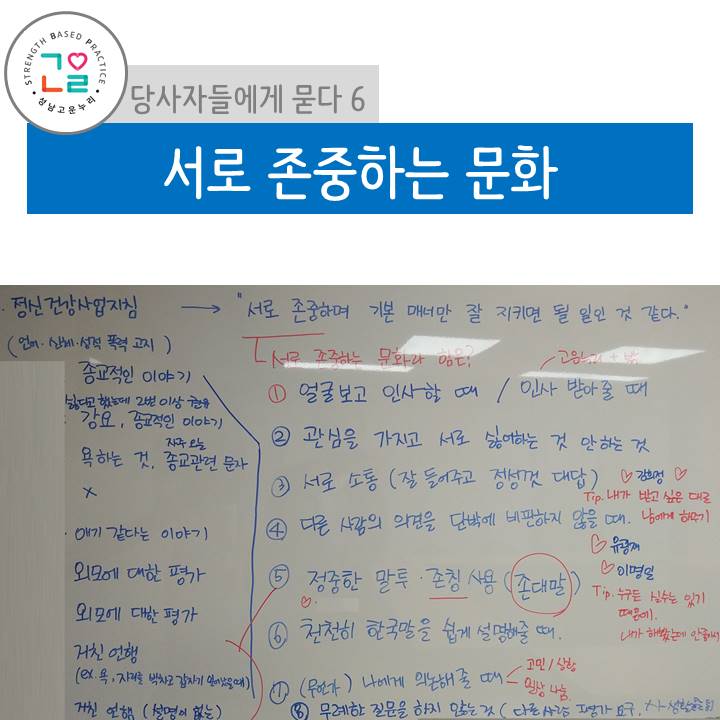 STRENGTH BASED PRACTICE
고운
성남고운누리
당사자들에게 묻다 6
서로 존중하는 문화
정신건강사업지침 → "서로 존중하며 기본 매너만 잘 지키면 될 일인 것 같다."
(언어·신체·성적 폭력 고지)
종교적인 이야기
싫다고 했는데 2번 이상
강요, 종교적인 이야기
욕하는 것, 종교관련 문자
자주 오늘
x
애기 같다는 이야기
외모에 대한 평가
외모에 대한 평가
거친 언행
(ex. 욕, 자리를 박차고 갑자기
거친 언행 (설명이 없는)
서로 존중하는 문화라 함은?
① 얼굴보고 인사할 때 / 인사 받아줄 때
② 관심을 가지고 서로 싫어하는 것 안하는 것
③ 서로 소통 (잘 들어주고 정성껏 대답)
Tip. 내가 받고 싶은 대로
남에게 해주기
④ 다른 사람의 의견을 단박에 비판하지 않을 때.
♡ 유광재
♡ 이명일
⑤ 정중한 말투·존칭 사용 (존대말)
Tip. 누구든 실수는 있기
때문에.
♡
⑥ 천천히 한국말을 쉽게 설명해줄 때.
⑦ (무언가) 나에게 의논해 줄 때
고민/상황
일상 나눔
⑧ 무례한 질문을 하지 않는 것 (다른사람 평가 요구,